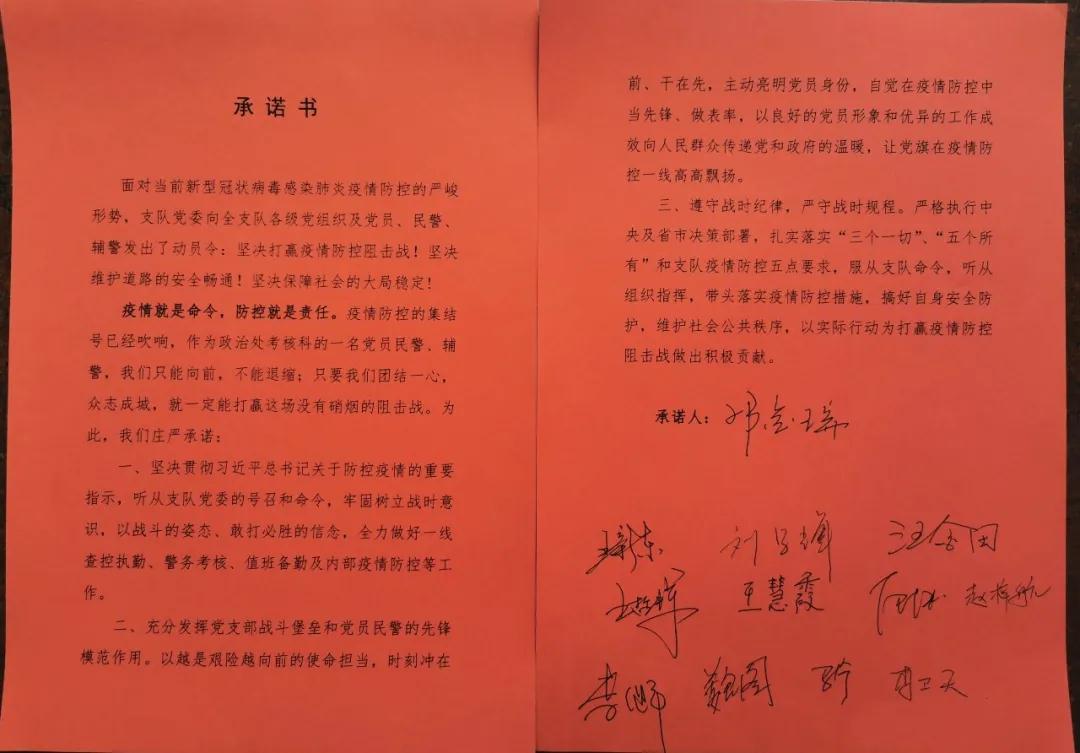 承诺书
面对当前新型冠状病毒感染肺炎疫情防控的严峻
形势，支队党委向全支队各级党组织及党员、民警、
辅警发出了动员令：坚决打赢疫情防控阻击战！坚决
维护道路的安全畅通！坚决保障社会的大局稳定！
疫情就是命令，防控就是责任。疫情防控的集结
号已经吹响，作为政治处考核科的一名党员民警、辅
警，我们只能向前，不能退缩；只要我们团结一心，
众志成城，就一定能打赢这场没有硝烟的阻击战。为
此，我们庄严承诺：
一、坚决贯彻习近平总书记关于防控疫情的重要
指示，听从支队党委的号召和命令，牢固树立战时意
识，以战斗的姿态、敢打必胜的信念，全力做好一线
查控执勤、警务考核、值班备勤及内部疫情防控等工
作。
二、充分发挥党支部战斗堡垒和党员民警的先锋
模范作用。以越是艰险越向前的使命担当，时刻冲在
前、干在先，主动亮明党员身份，自觉在疫情防控中
当先锋、做表率，以良好的党员形象和优异的工作成
效向人民群众传递党和政府的温暖，让党旗在疫情防
控一线高高飘扬。
三、遵守战时纪律，严守战时规程。严格执行中
央及省市决策部署，扎实落实“三个一切”、“五个所
有”和支队疫情防控五点要求，服从支队命令，听从
组织指挥，带头落实疫情防控措施，搞好自身安全防
护，维护社会公共秩序，以实际行动为打赢疫情防控
阻击战做出积极贡献。
承诺人：
王慧霞